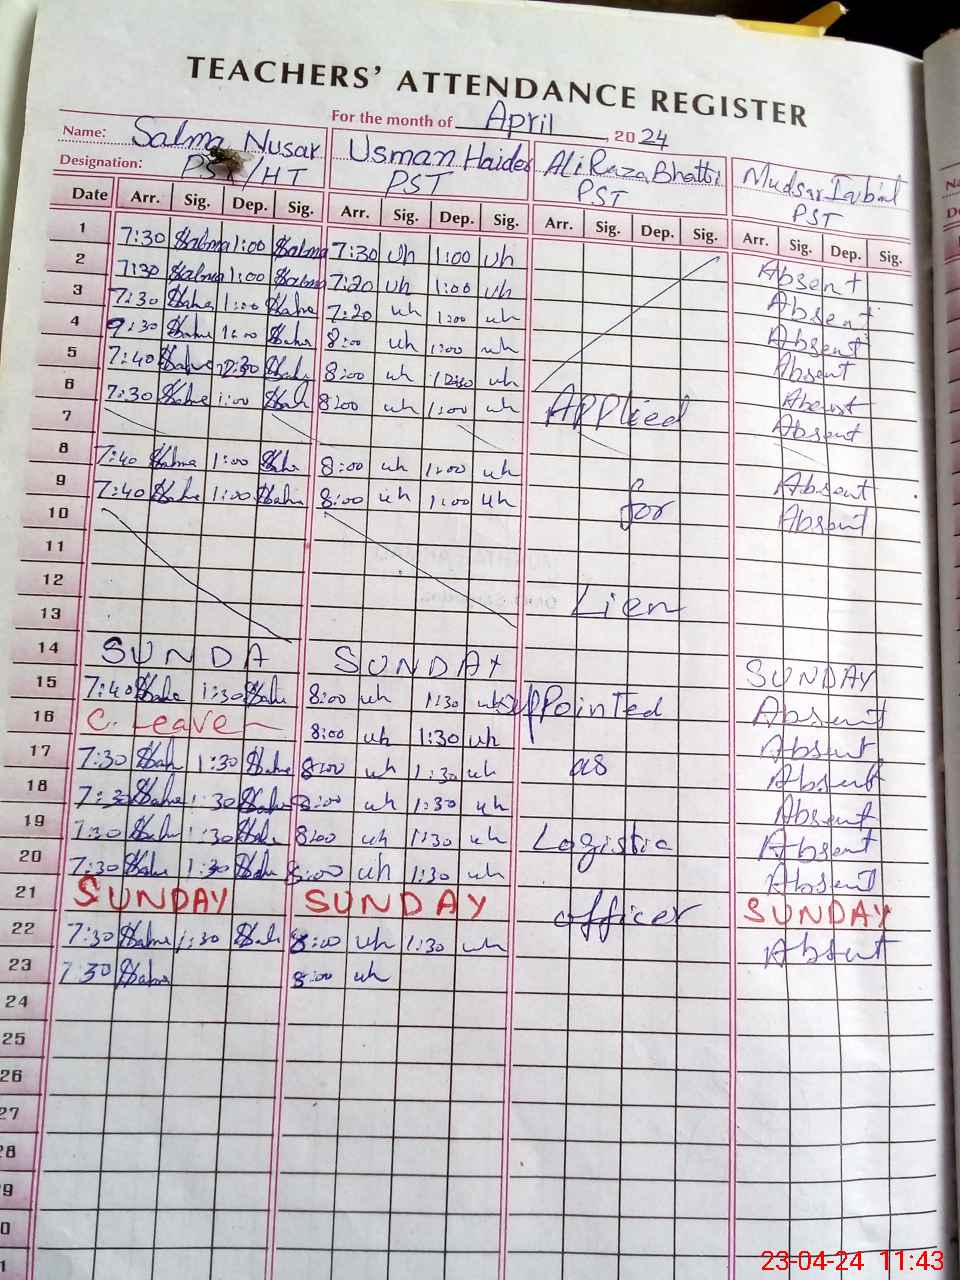 TEACHERS' ATTENDANCE REGISTER
For the month of April, 2024
Name: Salma Nusar Usman Haider Ali Raza Bhatti Mudsar Iqbal
Designation: PST/HT PST PST PST
Date Arr. Sig. Dep. Sig. Arr. Sig. Dep. Sig. Arr. Sig. Dep. Sig. Arr. Sig. Dep. Sig.
1 7:30 Salma 1:00 Salma 7:30 uh 1:00 uh Absent
2 7:30 Salma 1:00 Salma 7:20 uh 1:00 uh Absent
3 7:30 1:00 7:20 uh 1:00 uh Absent
4 9:30 1:00 8:00 uh 1:00 uh Absent
5 7:40 12:30 8:00 uh 12:30 uh Absent
6 7:30 1:00 8:00 uh 1:00 uh APPlied Absent
7
8 7:40 Salma 1:00 8:00 uh 1:00 uh Absent
9 7:40 1:00 8:00 uh 1:00 uh for Absent
10
11
12
13 Lien
14 SUNDA SUNDAY SUNDAY
15 7:40 1:30 8:00 uh 1:30 uh APPointed Absent
16 C. Leave 8:00 uh 1:30 uh Absent
17 7:30 1:30 8:00 uh 1:30 uh as Absent
18 7:30 1:30 8:00 uh 1:30 uh Absent
19 7:30 1:30 8:00 uh 1:30 uh Logistic Absent
20 7:30 1:30 8:00 uh 1:30 uh Absent
21 SUNDAY SUNDAY officer SUNDAY
22 7:30 Salma 1:30 8:00 uh 1:30 uh Absent
23 7:30 Salma 8:00 uh
24
25
26
27
28
9
0
1
23-04-24 11:43